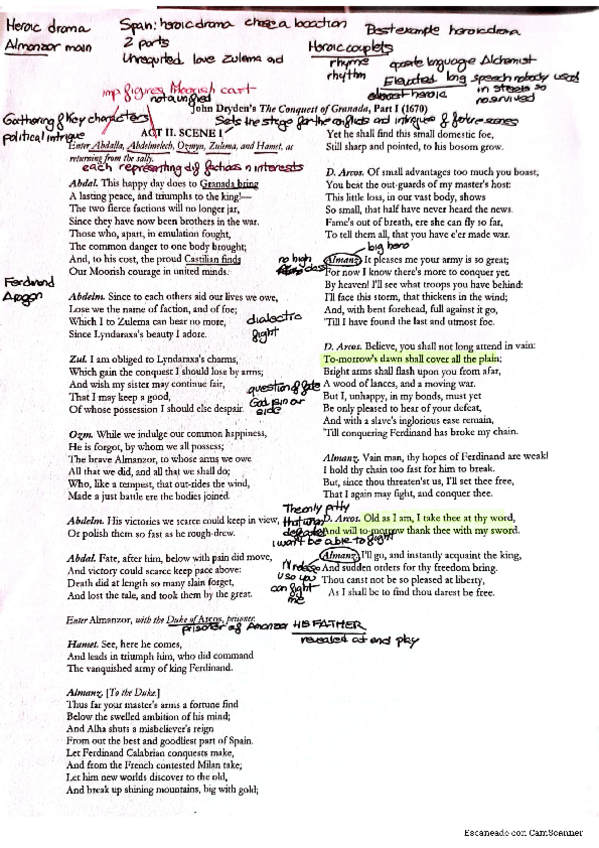 Heroic drama
Almanzor main
Span: heroic drama chose a location
2 parts
Unrequited love Zulema and
Best example heroic drama
Heroic couplets
rhyme
rhythm
quote language Alchemist
Elevated long speech nobody used
in streets so
no survived
almost heroic
imp figures Moorish cart
not a unified
Gathering of Key characters
political intrigue
John Dryden's The Conquest of Granada, Part I (1670)
Sets the stage for the conflicts and intrigue of future scenes
ACT II. SCENE I
Enter Abdalla, Abdelmelech, Ozmyn, Zulema, and Hamet, as
returning from the sally.
each representing dif factions n interests
Abdal. This happy day does to Granada bring
A lasting peace, and triumphs to the king!—
The two fierce factions will no longer jar,
Since they have now been brothers in the war.
Those who, apart, in emulation fought,
The common danger to one body brought;
And, to his cost, the proud Castilian finds
Our Moorish courage in united minds.
Ferdinand
Aragon
Abdelm. Since to each others aid our lives we owe,
Lose we the name of faction, and of foe;
Which I to Zulema can bear no more,
Since Lyndaraxa's beauty I adore.
dialectic
fight
Zul. I am obliged to Lyndaraxa's charms,
Which gain the conquest I should lose by arms;
And wish my sister may continue fair,
That I may keep a good,
Of whose possession I should else despair.
question of fate
God is in our
side
Ozm. While we indulge our common happiness,
He is forgot, by whom we all possess;
The brave Almanzor, to whose arms we owe
All that we did, and all that we shall do;
Who, like a tempest, that out-rides the wind,
Made a just battle ere the bodies joined.
Abdelm. His victories we scarce could keep in view,
Or polish them so fast as he rough-drew.
Abdal. Fate, after him, below with pain did move,
And victory could scarce keep pace above:
Death did at length so many slain forget,
And lost the tale, and took them by the great.
Enter Almanzor, with the Duke of Arcos, prisoner.
prisoner of Almanzor HIS FATHER
revealed at end play
Hamet. See, here he comes,
And leads in triumph him, who did command
The vanquished army of king Ferdinand.
Almanz. [To the Duke.]
Thus far your master's arms a fortune find
Below the swelled ambition of his mind;
And Alha shuts a misbeliever's reign
From out the best and goodliest part of Spain.
Let Ferdinand Calabrian conquests make,
And from the French contested Milan take;
Let him new worlds discover to the old,
And break up shining mountains, big with gold;
Yet he shall find this small domestic foe,
Still sharp and pointed, to his bosom grow.
D. Arcos. Of small advantages too much you boast;
You beat the out-guards of my master's host:
This little loss, in our vast body, shows
So small, that half have never heard the news.
Fame's out of breath, ere she can fly so far,
To tell them all, that you have e'er made war.
big hero
no high
class
Almanz. It pleases me your army is so great;
For now I know there's more to conquer yet.
By heaven! I'll see what troops you have behind:
I'll face this storm, that thickens in the wind;
And, with bent forehead, full against it go,
'Till I have found the last and utmost foe.
D. Arcos. Believe, you shall not long attend in vain:
To-morrow's dawn shall cover all the plain;
Bright arms shall flash upon you from afar,
A wood of lances, and a moving war.
But I, unhappy, in my bonds, must yet
Be only pleased to hear of your defeat,
And with a slave's inglorious ease remain,
'Till conquering Ferdinand has broke my chain.
Almanz. Vain man, thy hopes of Ferdinand are weak!
I hold thy chain too fast for him to break.
But, since thou threaten'st us, I'll set thee free,
That I again may fight, and conquer thee.
The only
that
I won't be able to fight
D. Arcos. Old as I am, I take thee at thy word,
And will to-morrow thank thee with my sword.
I'll
u so you
can fight
me
Almanz. I'll go, and instantly acquaint the king,
And sudden orders for thy freedom bring.
Thou canst not be so pleased at liberty,
As I shall be to find thou darest be free.
Escaneado con CamScanner